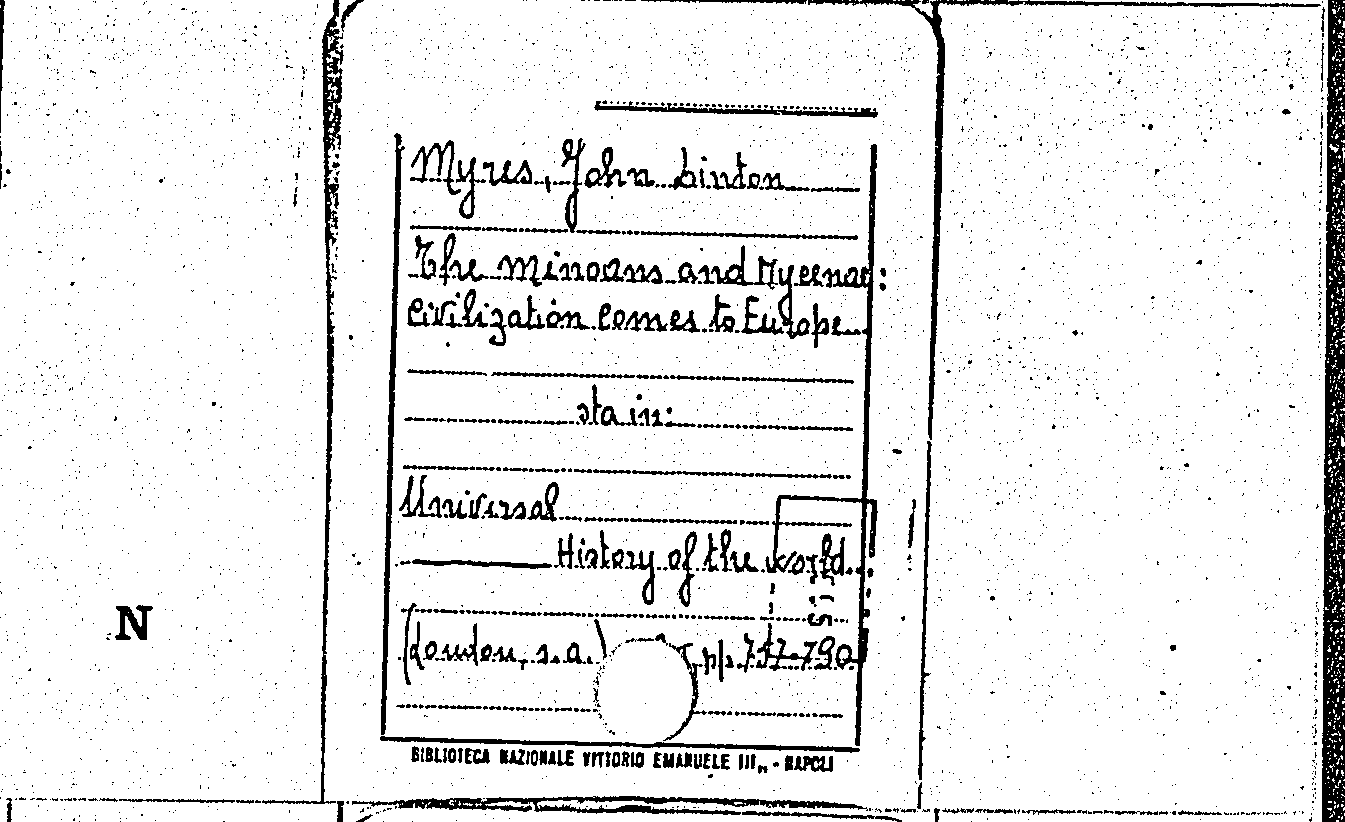 Myres, John Linton
The Minoans and Mycenae:
Civilization comes to Europe
sta in:
Universal
History of the World
N
(London, s.a.) pp. 757-790
BIBLIOTECA NAZIONALE VITTORIO EMANUELE III„ - NAPOLI